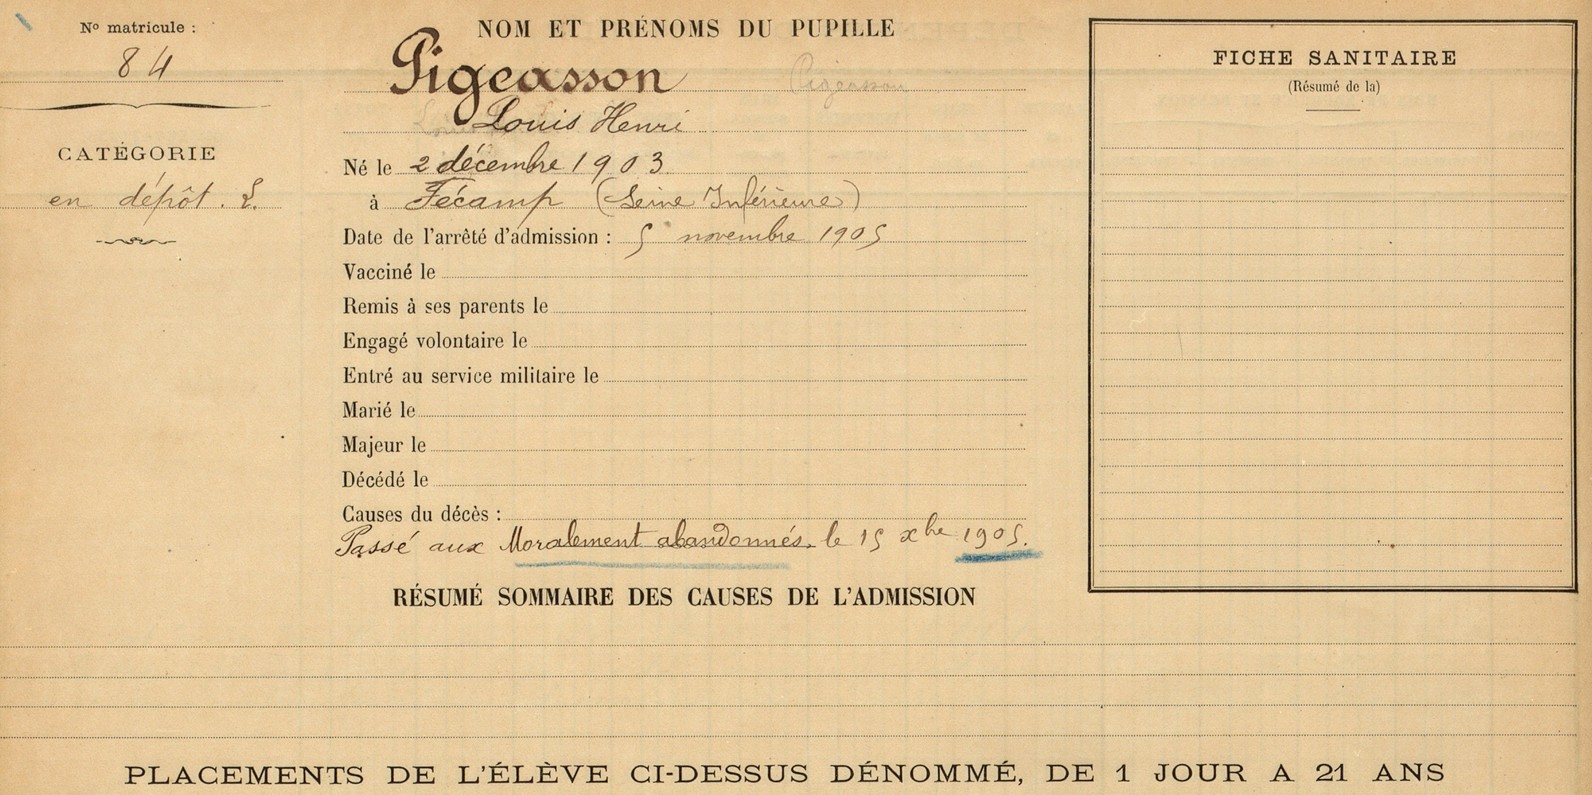 N° matricule :
84
CATÉGORIE
en dépôt. L.
NOM ET PRÉNOMS DU PUPILLE
Pigeasson
Pigeasson
Louis Henri
Né le 2 décembre 1903
à Fécamp (Seine Inférieure)
Date de l'arrêté d'admission : 5 novembre 1905
Vacciné le
Remis à ses parents le
Engagé volontaire le
Entré au service militaire le
Marié le
Majeur le
Décédé le
Causes du décès :
Passé aux Moralement abandonnés. le 15 xbre 1905.
FICHE SANITAIRE
(Résumé de la)
RÉSUMÉ SOMMAIRE DES CAUSES DE L'ADMISSION
PLACEMENTS DE L'ÉLÈVE CI-DESSUS DÉNOMMÉ, DE 1 JOUR A 21 ANS